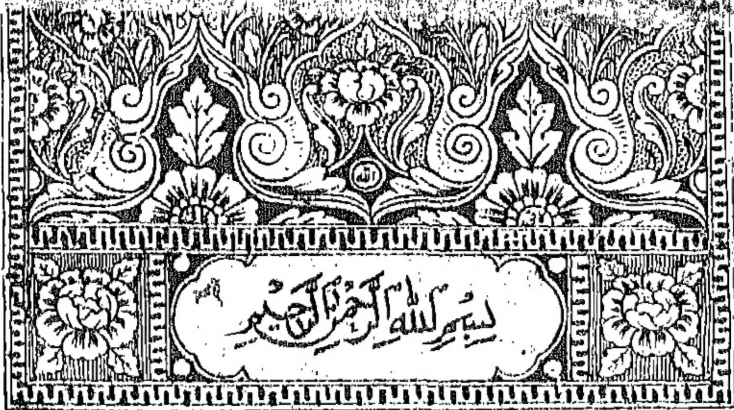 الله
بِسْمِ اللهِ الرَّحْمٰنِ الرَّحِيْمِ